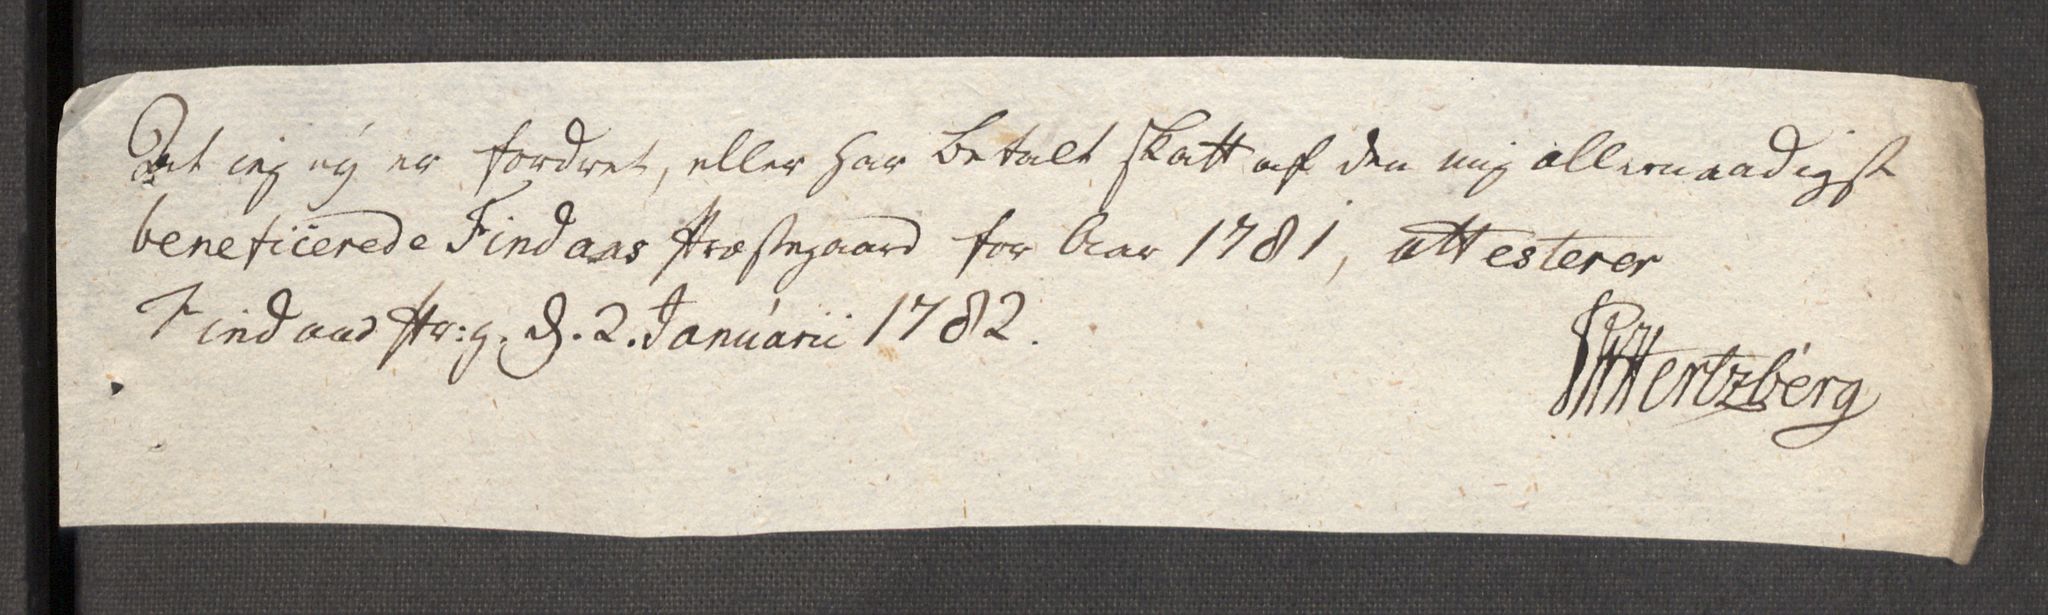 At ieg ey er fordret, eller har betalt skatt af den mig allernaadigst
beneficerede Findaas Præstegaard for Aar 1781, attesterer
Findaas Pr:g. d. 2. Januarii 1782.
Hertzberg